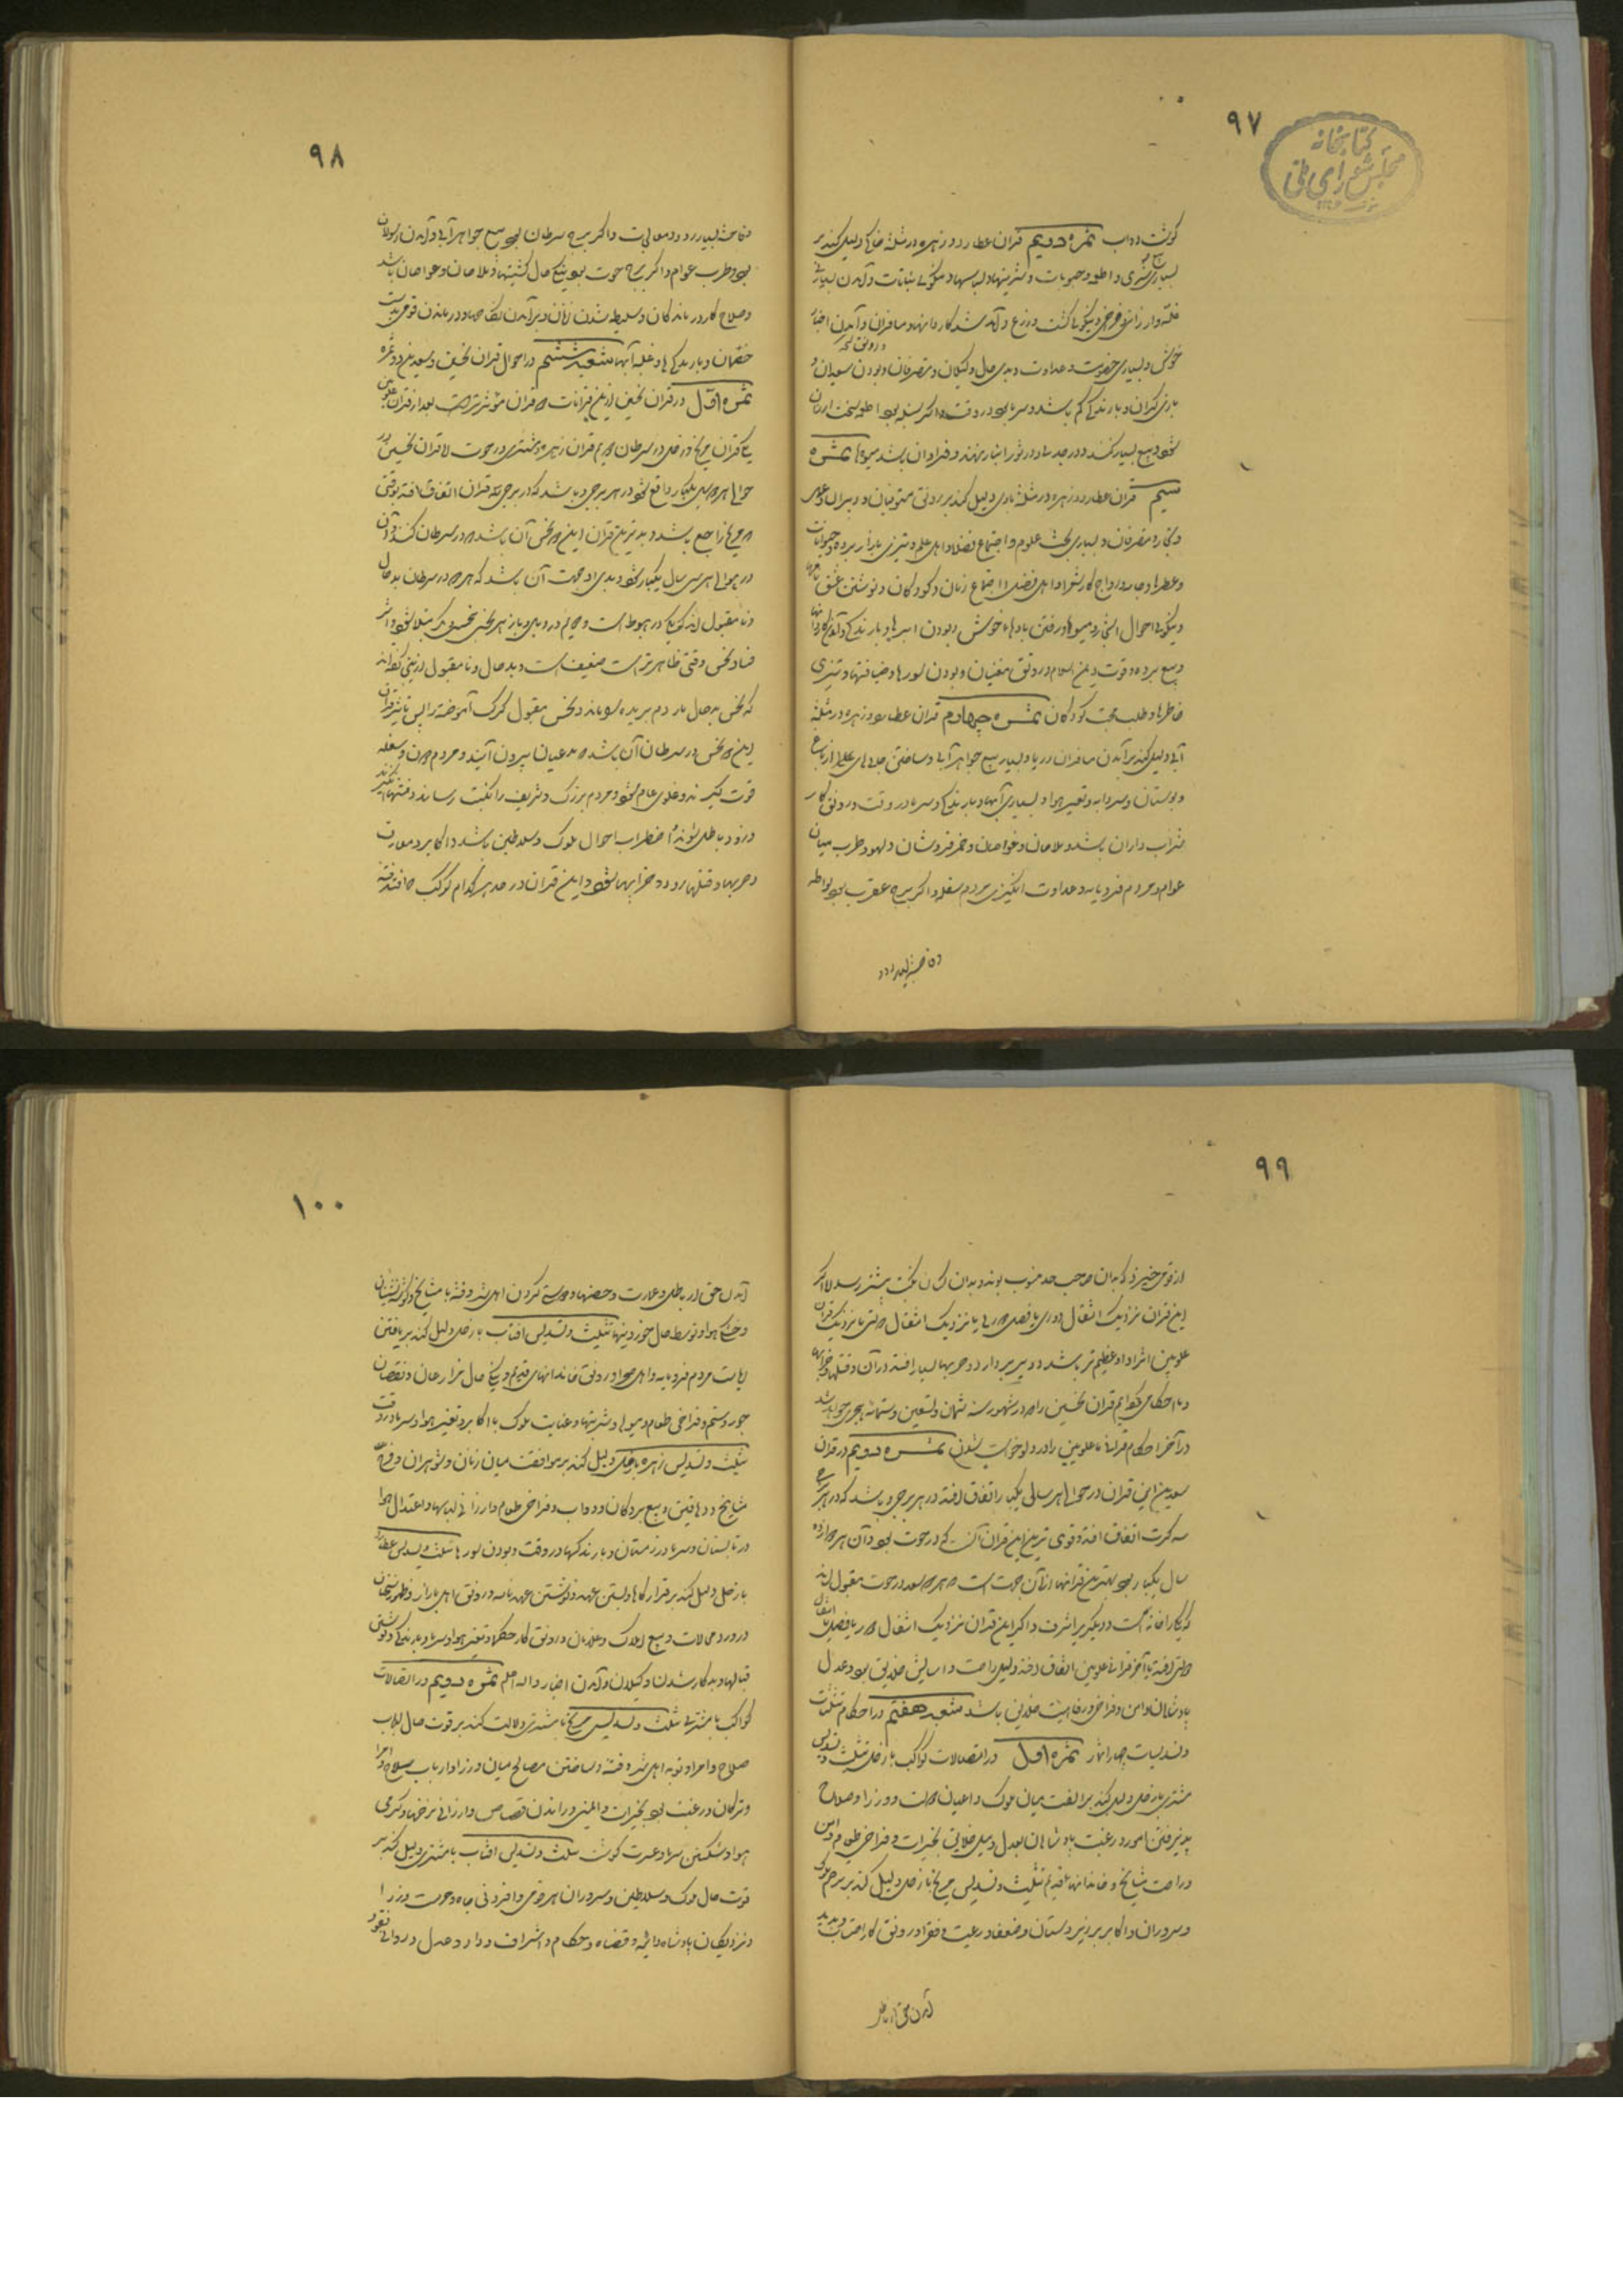 ۹۷
کتابخانه
مجلس شورای ملی
گوشت دواب ثمره دویم قران عطارد و زهره در مثلثه خاکی دلیل کند بر
بسیاری و اطعمه و حبوبات و شیرینیها و لباسها و نیکوئی نباتات و آمدن
غله و ارزانی و فراخی و نیکوئی کشت و زرع و آمد شد کاروانها و مسافران و آمدن اخبار
خوش و بسیاری خصومت و عداوت و بدی حال وکیلان و متصرفان و بودن
و بارندگی کم باشد و سرما بود در وقت و اگر سنبله بود
بیع بسیار کنند و در جدی و در ثور انبار نهند و فراوان باشد میوها ثمره
سیم قران عطارد و زهره در مثلثه بادی دلیل کند بر رونق مستوفیان و دبیران و
و تجار و متصرفان و بسیاری بحث علوم و اجتماع فضلا و اهل علم و تیزی بازار برده و حیوانات
و عطرها و رواج کار شعرا و اهل فضل و اجتماع زنان و کودکان و نوشتن عشق
و نیکوئی احوال اشجار و میوها و رفتن بادهای خوش و بودن ابرها و بارندگی
و بیع برده و قوت و رونق مغنیان و بودن سورها و ضیافتها و تیزی
خاطرها و طلب محبت کودکان ثمره چهارم قران عطارد و زهره در مثلثه
آبی دلیل کند بر آمدن مسافران دریا و بسیار بیع جواهر آبی و ساختن جاهای عالی از باغ
و بوستان و سردابه و تغیر هوا و بسیاری آبها و بارندگی و سرما در وقت و رونق کار
شراب داران باشد و ملاحان و غواصان و خمر فروشان و لهو و طرب میان
عوام و مردم فرومایه و عداوت انگیزی مردم سفله و اگر ببرج عقرب بود بواسطه
۹۸
فاحشه بسیار رود و معایب و اگر ببرج سرطان بود بیع جواهر آبی و آمدن رسولان
بود و طرب عوام و اگر ببرج حوت بود نیکی حال کشتیها و ملاحان و غواصان باشد
و صلاح کار درماندگان و سلیطه شدن زنان و برآمدن و درماندن قومی
خصمان و بارندگیها و غلبه آبها شعبه ششم در احوال قران نحسین و سعدین و دو ثمره
ثمره اول در قران نحسین از قرانات قران مؤثرتر است بعد از قران علویین
یکی قران مریخ و زحل در سرطان دویم قران زهره و مشتری در حوت اما قران نحسین در
حوالی هر سال یکبار واقع شود در هر برجی و باشد که در برجی قران اتفاق افتد بوقتی
مریخ راجع باشد و بدترین قران این نحس آن باشد در سرطان کنند و آن
در حوالی هر سی سال یکبار شود و بدی او جهت آن باشد که هر دو در سرطان بدحال
و نامقبول اند که یکی در هبوط است و دویم در وبال و باز هر نحس
فساد نحس وقتی ظاهرتر است ضعیف است و بدحال و نامقبول
که نحس بدحال مار دم بریده را ماند و نحس مقبول گرگ آموخته را پس تأثیر قران
این دو نحس در سرطان آن باشد مدعیان بیرون آیند و مردم و سفله
قوت گیرند و غلوی عام شود و مردم بزرگ و شریف را نکبت رسانند و فتنها
و زود باطل شوند و اضطراب احوال ملوک و سلاطین باشد و اکابر و معارف
و حربها و قتلها رود و خرابیها شود و این قران در حد هر کدام کوکب افتد
۹۹
از قومی خیزد که بدان صاحب حد منسوب بوند و بدان کسان نکبت بیشتر رسد و اگر
این قران نزدیک انتقال دوری یا فصلی یا نزدیک انتقال مثلثی یا نزدیک قران
علویین اثر او عظیم‌تر باشد و دیر بردارد و حربها بسیار افتد در آن و قتلها و خرابیها
و ما احکامی که گوئیم قران نحسین را در شهور سنه ثمان و تسعین و ستمائه هجری خواهد شد
در آخر احکام قرانات علویین را در خواهد شدن ثمره دویم در قران
سعدین این قران در حوالی هر سالی یکبار اتفاق افتد در هر برجی و باشد که در هر برج
سه کرت اتفاق افتد و قوی ترین این قران آن که در حوت بود و آن هر دوازده
سال یکبار بود بهترین قرانها از آن جهت است هر دو سعد در حوت مقبول اند
که یکی را خانه است و دیگر را شرف و اگر این قران نزدیک انتقال دور یا فصل یا انتقال
مثلثی افتد یا آخر قران علویین اتفاق افتد دلیل راحت و آسایش خلایق بود و عدل
پادشاهان و امن و فراخی و رفاهیت خلایق باشد شعبه هفتم در احکام تثلیثات
و تسدیسات چهار ثمار ثمره اول در اتصالات کواکب با زحل تثلیث و تسدیس
مشتری با زحل دلیل کند بر الفت میان ملوک و اعیان دولت و وزرا و صلاح
پذیرفتن امور و رغبت پادشاهان بعدل و میل خلایق بخیرات و فراخی طعام و امن
و راحت مشایخ و خاندانهای قدیم تثلیث و تسدیس مریخ با زحل دلیل کند بر مرحمت ملوک
و سروران و اکابر بر زیردستان و ضعفا و رعیت و فقرا و رونق کار احتساب
آمدن حق از باطل
۱۰۰
آمدن حق از باطل و عمارت و حصنها و توبه کردن اهل شر و فتنه با مشایخ و گوشه نشینان
و خشکی هوا و توسط حال خوردنیها تثلیث و تسدیس آفتاب با زحل دلیل کند بر یافتن
ریاست مردم فرومایه و اهل سواد و رونق خاندانهای قدیم و نیکی حال مزارعان و نقصان
جور و ستم و فراخی طعام و میوها و شربتها و عنایت ملوک با اکابر و تغیر هوا و سرما در وقت
تثلیث و تسدیس زهره با زحل دلیل کند بر موافقت میان زنان و شوهران و فرح
مشایخ و دهاقین و بیع بردگان و دواب و فراخی طعام و ارزانی لباسها و اعتدال هوا
در تابستان و سرما در زمستان و بارندگیها در وقت و بودن سورها تثلیث و تسدیس عطارد
با زحل دلیل کند بر قرار کارها و بستن عهد و نوشتن عهدنامه و رونق اهل بازار
در و معاملات و بیع املاک و رونق کار حکما و تغیر هوا و سرما و بارندگی و نوشتن
قبالها و بدکار شدن وکیلان و آمدن اخبار والله اعلم ثمره دویم در اتصالات
کواکب با مشتری تثلیث و تسدیس مریخ با مشتری دلالت کند بر قوت حال ارباب
صلاح و امرا و توبه اهل شر و فتنه و ساختن مصالح میان وزرا و ارباب سلاح و امرا
و ترکان و رغبت بود بخیرات و ایمنی و راندن قصاص و ارزانی نرخها و گرمی
هوا و شکستن سرما و عسرت گوشت تثلیث و تسدیس آفتاب با مشتری دلیل کند بر
قوت حال ملوک و سلاطین و سروران هر قومی و افزونی جاه و حرمت وزرا
و نزدیکان پادشاه و ائمه و قضاة و حکام و اشراف و داد و عدل و روائی نقود